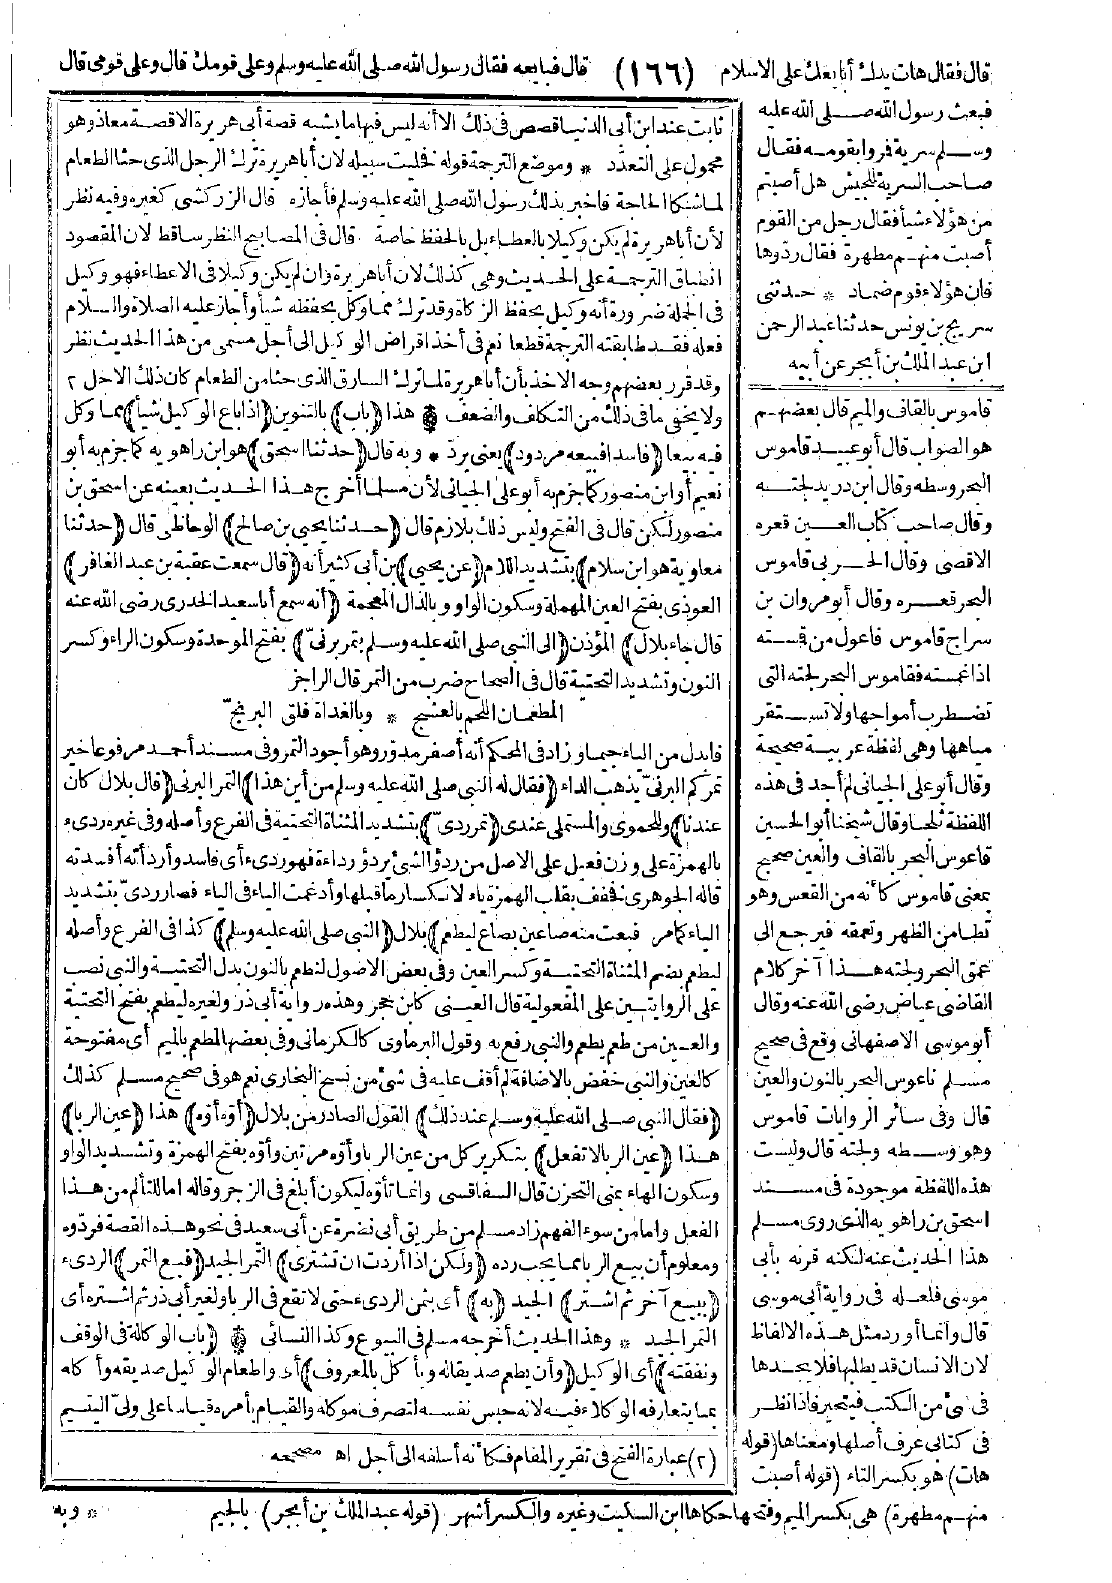 قال فقال هات يدك أبايعك على الاسلام (١٦٦) قال فبايعه فقال رسول الله صلى الله عليه وسلم وعلى قومك قال وعلى قومى قال
فبعث رسول الله صلى الله عليه
وسلم سرية فمروا بقومه فقال
صاحب السرية للجيش هل أصبتم
من هؤلاء شيأ فقال رجل من القوم
أصبت منهم مطهرة فقال ردّوها
فان هؤلاء قوم ضماد * حدثنى
سريج بن يونس حدثنا عبد الرحمن
ابن عبد الملك بن أبجر عن أبيه
قاموس بالقاف والميم قال بعضهم
هو الصواب قال أبو عبيد قاموس
البحر وسطه وقال ابن دريد لجته
وقال صاحب كتاب العين قعره
الاقصى وقال الحربى قاموس
البحر قعره وقال أبو مروان بن
سراج قاموس فاعول من قسته
اذا غمسته فقاموس البحر لجته التى
تضطرب أمواجها ولا تستقر
مياهها وهى لفظة عربية صحيحة
وقال أبو على الجيانى لم أجد فى هذه
اللفظة ثلجا وقال شيخنا أبو الحسين
قاعوس البحر بالقاف والعين صحيح
بمعنى قاموس كأنه من القعس وهو
تطامن الظهر وتعمقه فيرجع الى
عمق البحر ولجته هذا آخر كلام
القاضى عياض رضى الله عنه وقال
أبو موسى الاصفهانى وقع فى صحيح
مسلم ناعوس البحر بالنون والعين
قال وفى سائر الروايات قاموس
وهو وسطه ولجته قال وليست
هذه اللفظة موجودة فى مسند
اسحق بن راهويه الذى روى مسلم
هذا الحديث عنه لكنه قرنه بأبى
موسى فلعله فى رواية أبى موسى
قال وانما أورد مثل هذه الالفاظ
لان الانسان قد يطلبها فلا يجدها
فى شئ من الكتب فيتحير فاذا نظر
فى كتابى عرف أصلها ومعناها (قوله
هات) هو بكسر التاء (قوله أصبت
منهم مطهرة) هى بكسر الميم وفتحها حكاها ابن السكيت وغيره والكسر أشهر (قوله عبد الملك بن أبجر) بالجيم
ثابت عند ابن أبى الدنيا قصص فى ذلك الا أنه ليس فيها ما يشبه قصة أبى هريرة الا قصة معاذ وهو
محمول على التعدّد * وموضع الترجمة قوله فخليت سبيله لان أبا هريرة ترك الرجل الذى حثا الطعام
لما شكا الحاجة فأخبر بذلك رسول الله صلى الله عليه وسلم فأجازه قال الزركشى كغيره وفيه نظر
لأن أبا هريرة لم يكن وكيلا بالعطاء بل بالحفظ خاصة قال فى المصابيح النظر ساقط لان المقصود
انطباق الترجمة على الحديث وهى كذلك لان أبا هريرة وان لم يكن وكيلا فى الاعطاء فهو وكيل
فى الجملة ضرورة أنه وكيل بحفظ الزكاة وقد ترك مما وكل بحفظه شيأ وأجاز عليه الصلاة والسلام
فعله فقد طابقته الترجمة قطعا نعم فى أخذ اقراض الوكيل الى أجل مسمى من هذا الحديث نظر
وقد قرر بعضهم وجه الاخذ بأن أبا هريرة لما ترك السارق الذى حثا من الطعام كان ذلك الاجل ٢
ولا يخفى ما فى ذلك من التكلف والضعف * هذا (باب) بالتنوين (اذا باع الوكيل شيأ) مما وكل
فيه بيعا (فاسدا فبيعه مردود) يعنى يردّ * وبه قال (حدثنا اسحق) هو ابن راهويه كما جزم به أبو
نعيم أو ابن منصور كما جزم به أبو على الجيانى لأن مسلما أخرج هذا الحديث بعينه عن اسحق بن
منصور لكن قال فى الفتح وليس ذلك بلازم قال (حدثنا يحيى بن صالح) الوحاظى قال (حدثنا
معاوية هو ابن سلام) بتشديد اللام (عن يحيى) بن أبى كثير أنه (قال سمعت عقبة بن عبد الغافر)
العوذى بفتح العين المهملة وسكون الواو وبالذال المعجمة (أنه سمع أبا سعيد الخدرى رضى الله عنه
قال جاء بلال) المؤذن (الى النبى صلى الله عليه وسلم بتمر برنىّ) بفتح الموحدة وسكون الراء وكسر
النون وتشديد التحتية قال فى الصحاح ضرب من التمر قال الراجز
المطعمان اللحم بالعشج * وبالغداة فلق البرنجّ
فابدل من الياء جيما وزاد فى المحكم أنه أصفر مدور وهو أجود التمر وفى مسند أحمد مرفوعا خير
تمركم البرنىّ يذهب الداء (فقال له النبى صلى الله عليه وسلم من أين هذا) التمر البرنى (قال بلال كان
عندنا) وللحموى والمستملى عندى (تمر ردىّ) بتشديد المثناة التحتية فى الفرع وأصله وفى غيره ردىء
بالهمزة على وزن فعيل على الاصل من ردؤ الشئ يردؤ رداءة فهو ردىء أى فاسد وأردأته أفسدته
قاله الجوهرى فخفف بقلب الهمزة ياء لانكسار ما قبلها وأدغمت الياء فى الياء فصار ردىّ بتشديد
الياء كما مر فبعت منه صاعين بصاع ليطعم) بلال (النبى صلى الله عليه وسلم) كذا فى الفرع وأصله
ليطعم بضم المثناة التحتية وكسر العين وفى بعض الاصول لنطعم بالنون بدل التحتية والنبى نصب
على الروايتين على المفعولية قال العينى كابن حجر وهذه رواية أبى ذر ولغيره ليطعم بفتح التحتية
والعين من طعم يطعم والنبى رفع به وقول البرماوى كالكرمانى وفى بعضها المطعم بالميم أى مفتوحة
كالعين والنبى خفض بالاضافة لم أقف عليه فى شئ من نسخ البخارى نعم هو فى صحيح مسلم كذلك
(فقال النبى صلى الله عليه وسلم عند ذلك) القول الصادر من بلال (أوّه أوّه) هذا (عين الربا)
هذا (عين الربا لا تفعل) بتكرير كل من عين الربا وأوّه مرتين وأوّه بفتح الهمزة وتشديد الواو
وسكون الهاء بمعنى التحزن قال السفاقسى وانما تأوّه ليكون أبلغ فى الزجر وقاله اما للتألم من هذا
الفعل واما من سوء الفهم زاد مسلم من طريق أبى نضرة عن أبى سعيد فى نحو هذه القصة فردّوه
ومعلوم أن بيع الربا مما يجب رده (ولكن اذا أردت ان تشترى) التمر الجيد (فبع التمر) الردىء
(ببيع آخر ثم اشتر) الجيد (به) أى بثمن الردىء حتى لا تقع فى الربا ولغير أبى ذر ثم اشتره أى
التمر الجيد * وهذا الحديث أخرجه مسلم فى البيوع وكذا النسائى * (باب الوكالة فى الوقف
ونفقته) أى الوكيل (وأن يطعم صديقا له ويأكل بالمعروف) أى واطعام الوكيل صديقه وأكله
بما يتعارفه الوكلاء فيه لانه حبس نفسه لتصرف موكله والقيام بأمره قياسا على ولىّ اليتيم
(٢) عبارة الفتح فى تقرير المقام فكأنه أسلفه الى أجل اه مصححه
* وبه